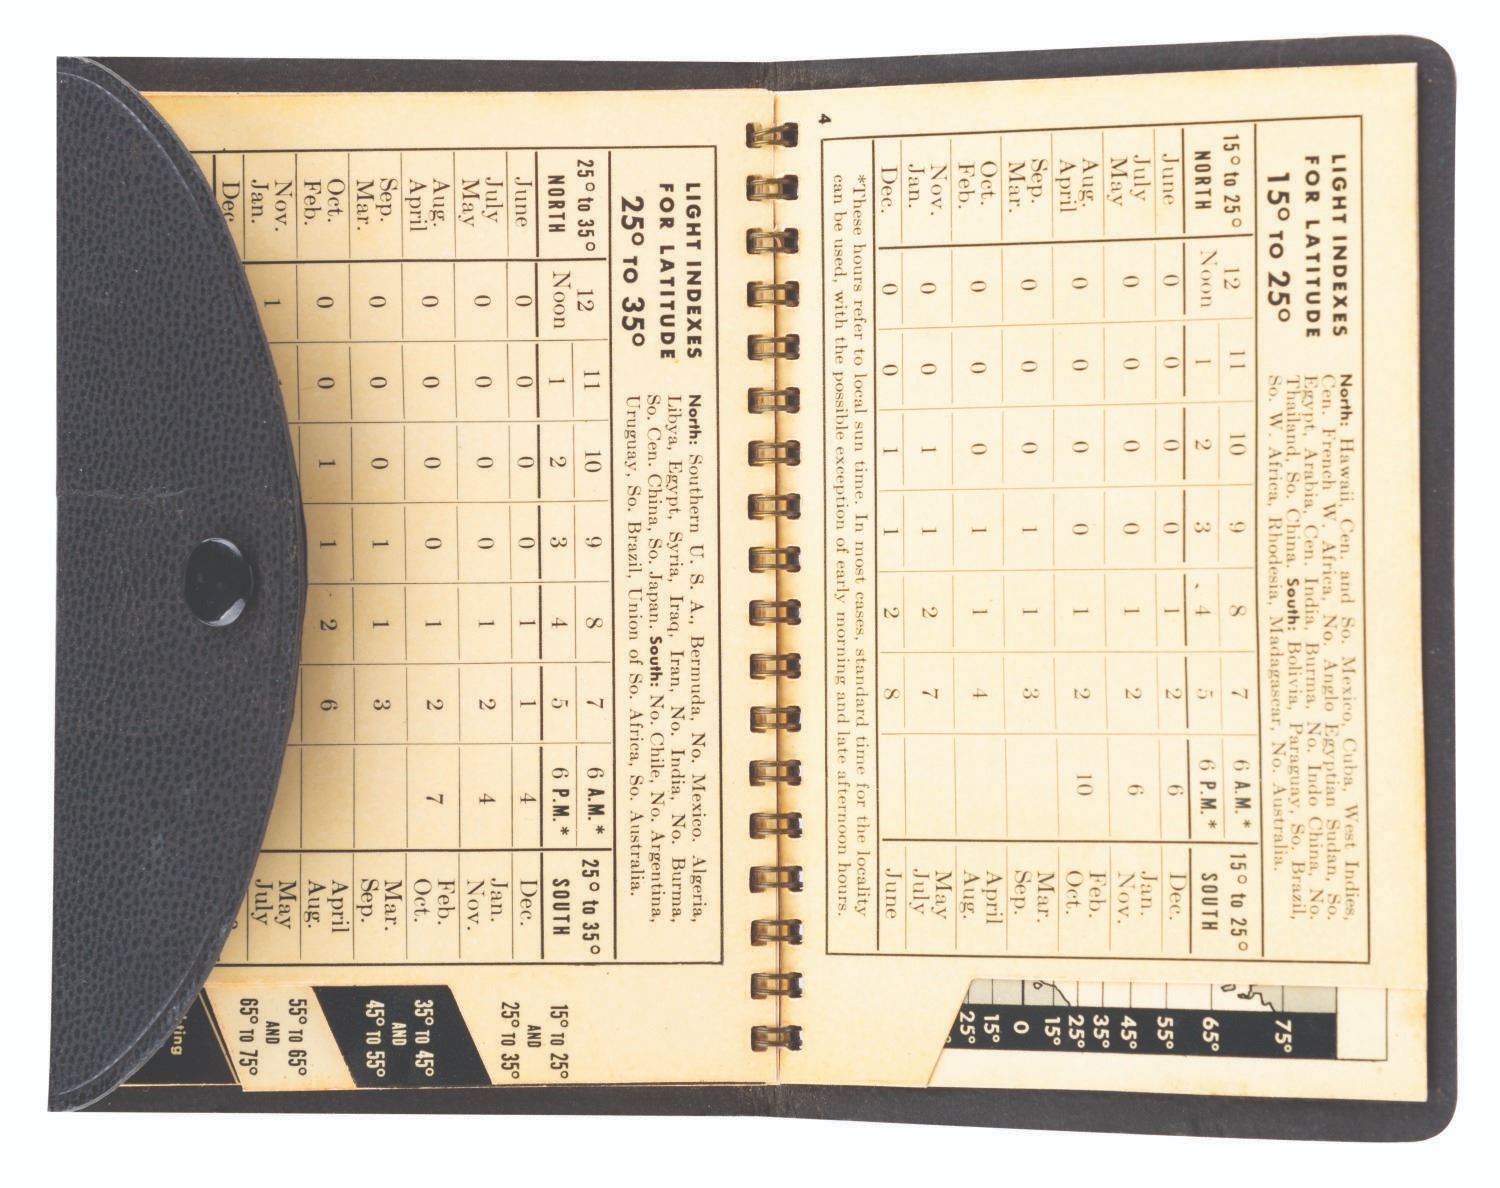 LIGHT INDEXES
FOR LATITUDE
15° TO 25°
North: Hawaii, Cen. and So. Mexico, Cuba, West Indies,
Cen. French W. Africa, No. Anglo Egyptian Sudan, So.
Egypt, Arabia, Cen. India, Burma, No. Indo China, No.
Thailand, So. China. South: Bolivia, Paraguay, So. Brazil,
So. W. Africa, Rhodesia, Madagascar, No. Australia.
15° to 25° 12 11 10 9 8 7 6 A.M.* 15° to 25°
NORTH Noon 1 2 3 4 5 6 P.M.* SOUTH
June 0 0 0 0 1 2 6 Dec.
July 0 0 0 0 1 2 6 Jan.
May Nov.
Aug. 0 0 0 0 1 2 10 Feb.
April Oct.
Sep. 0 0 0 1 1 3 Mar.
Mar. Sep.
Oct. 0 0 0 1 1 4 April
Feb. Aug.
Nov. 0 0 1 1 2 7 May
Jan. July
Dec. 0 0 1 1 2 8 June
*These hours refer to local sun time. In most cases, standard time for the locality
can be used, with the possible exception of early morning and late afternoon hours.
4
75°
65°
55°
45°
35°
25°
15°
0
15°
25°
LIGHT INDEXES
FOR LATITUDE
25° TO 35°
North: Southern U. S. A., Bermuda, No. Mexico. Algeria,
Libya, Egypt, Syria, Iraq, Iran, No. India, No. Burma,
So. Cen. China, So. Japan. South: No. Chile, No. Argentina,
Uruguay, So. Brazil, Union of So. Africa, So. Australia.
25° to 35° 12 11 10 9 8 7 6 A.M.* 25° to 35°
NORTH Noon 1 2 3 4 5 6 P.M.* SOUTH
June 0 0 0 0 1 1 4 Dec.
July 0 0 0 0 1 2 4 Jan.
May Nov.
Aug. 0 0 0 0 1 2 7 Feb.
April Oct.
Sep. 0 0 0 1 1 3 Mar.
Mar. Sep.
Oct. 0 0 1 1 2 6 April
Feb. Aug.
Nov. 1 May
Jan. July
Dec
15° TO 25°
AND
25° TO 35°
35° TO 45°
AND
45° TO 55°
55° TO 65°
AND
65° TO 75°